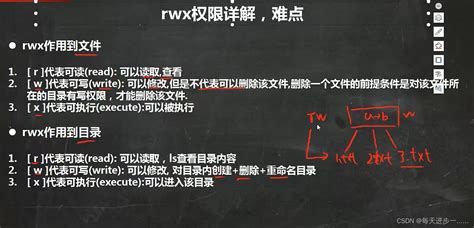 rwx权限详解，难点
● rwx作用到文件
1. [ r ]代表可读(read): 可以读取,查看
2. [ w ]代表可写(write): 可以修改,但是不代表可以删除该文件,删除一个文件的前提条件是对该文件所
在的目录有写权限，才能删除该文件.
3. [ x ]代表可执行(execute):可以被执行
● rwx作用到目录
1. [ r ]代表可读(read): 可以读取，ls查看目录内容
2. [ w ]代表可写(write): 可以修改, 对目录内创建+删除+重命名目录
3. [ x ]代表可执行(execute):可以进入该目录
rw
w
3.txt
CSDN @每天进步一......